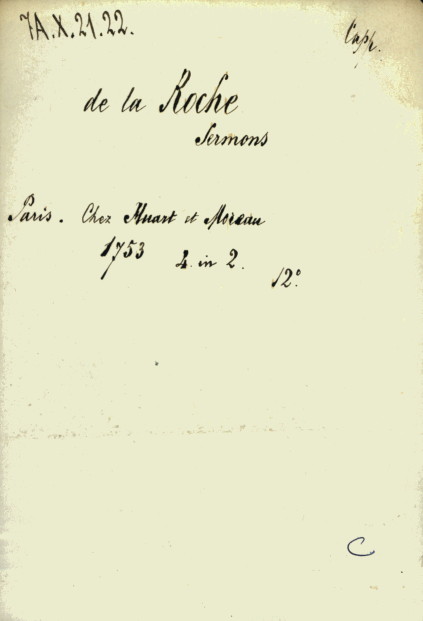 7A.X.21.22.
Capp.
de la Roche
Sermons
Paris. Chez Huart et Moreau
1753 4. in 2. 12°.
C